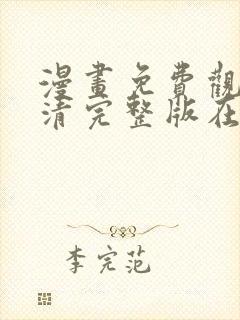 漫畫免費觀
清完整版在
李完范